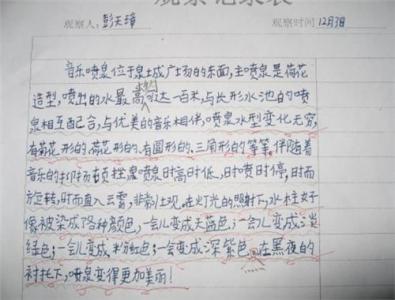 观察记录表
观察人：彭天璋 观察时间12月3日
音乐喷泉位于泉城广场的东面，主喷泉是荷花
造型，喷出的水最高可达一百米，与长形水池的喷
泉相互配合，与优美的音乐相伴，喷泉水型变化无穷，
有菊花形的、荷花形的、有圆形的、三角形的等等。伴随着
音乐的抑扬顿挫喷泉时高时低，时喷时停，时而
方旋转，时而直入云霄，非常壮观。在灯光的照射下，水柱好
像被染成了各种颜色，一会儿变成天蓝色，一会儿变成淡
绿色；一会儿变成粉红色；一会变成深紫色。在黑夜的
衬托下，喷泉变得更加美丽！